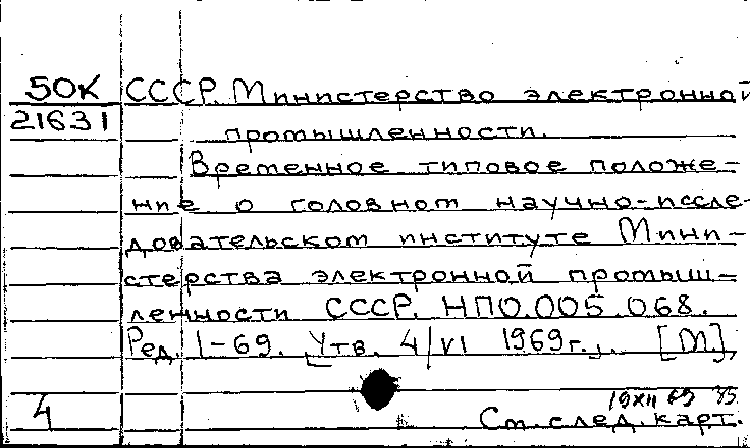 50К СССР. Министерство электронной
21631 промышленности.
Временное типовое положе-
ние о головном научно-иссле-
довательском институте Мини-
стерства электронной промыш-
ленности СССР. НПО.005.068.
Ред. 1-69. Утв. 4/VI 1969г. [М.],
19XII 69
4 См. след. карт.